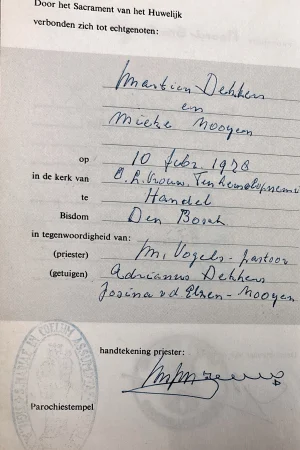 Door het Sacrament van het Huwelijk
verbonden zich tot echtgenoten:
Martien Dekkers
en
Mieke Nooyen
op 10 febr. 1978
in de kerk van O.L. Vrouw. Tenhemelopneming
te Handel
Bisdom Den Bosch
in tegenwoordigheid van:
(priester) M. Vogels - pastoor
(getuigen) Adrianus Dekkers
Josina v d Elzen - Nooyen
handtekening priester:
Parochiestempel